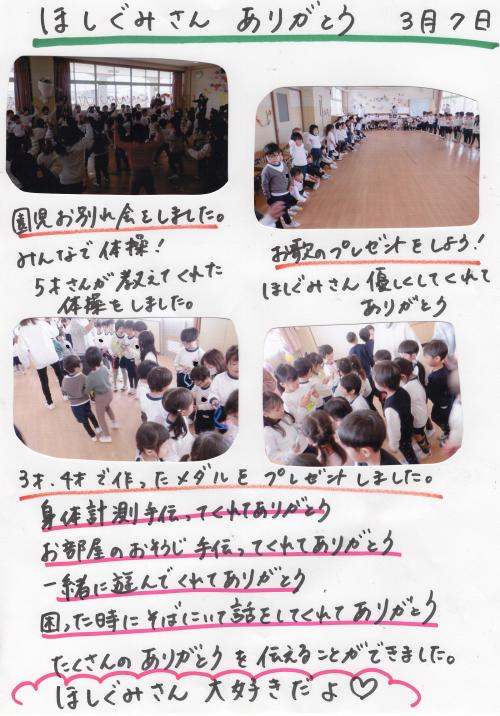 ほしぐみさん ありがとう 3月7日
園児お別れ会をしました。
みんなで体操!
5才さんが教えてくれた
体操をしました。
お歌のプレゼントをしよう!
ほしぐみさん優しくしてくれて
ありがとう
3才、4才で作ったメダルをプレゼントしました。
身体計測手伝ってくれてありがとう
お部屋のおそうじ手伝ってくれてありがとう
一緒に遊んでくれてありがとう
困った時にそばにいて話をしてくれてありがとう
たくさんのありがとうを伝えることができました。
ほしぐみさん 大好きだよ♡